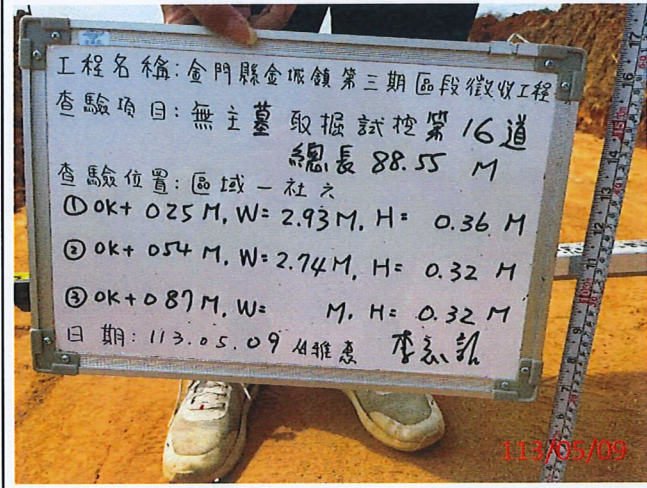 工程名稱:金門縣金城鎮第三期區段徵收工程
查驗項目:無主墓取掘試挖第16道
總長 88.55 M
查驗位置:區域一社六
①0K+025M, W=2.93M, H= 0.36 M
②0K+054M, W=2.74M, H= 0.32 M
③0K+087M, W= M, H= 0.32 M
日期:113.05.09 雅惠 李
113/05/09